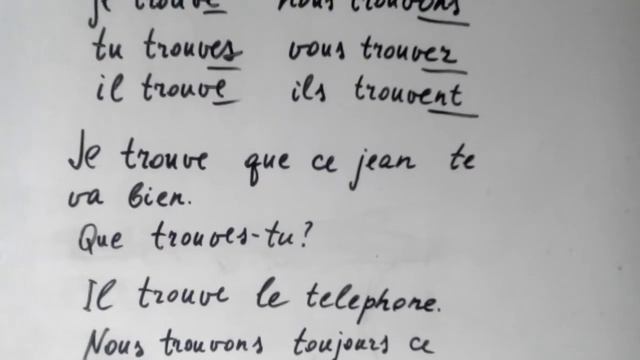 je trouve nous trouvons
tu trouves vous trouvez
il trouve ils trouvent
Je trouve que ce jean te
va bien.
Que trouves-tu?
Il trouve le telephone.
Nous trouvons toujours ce